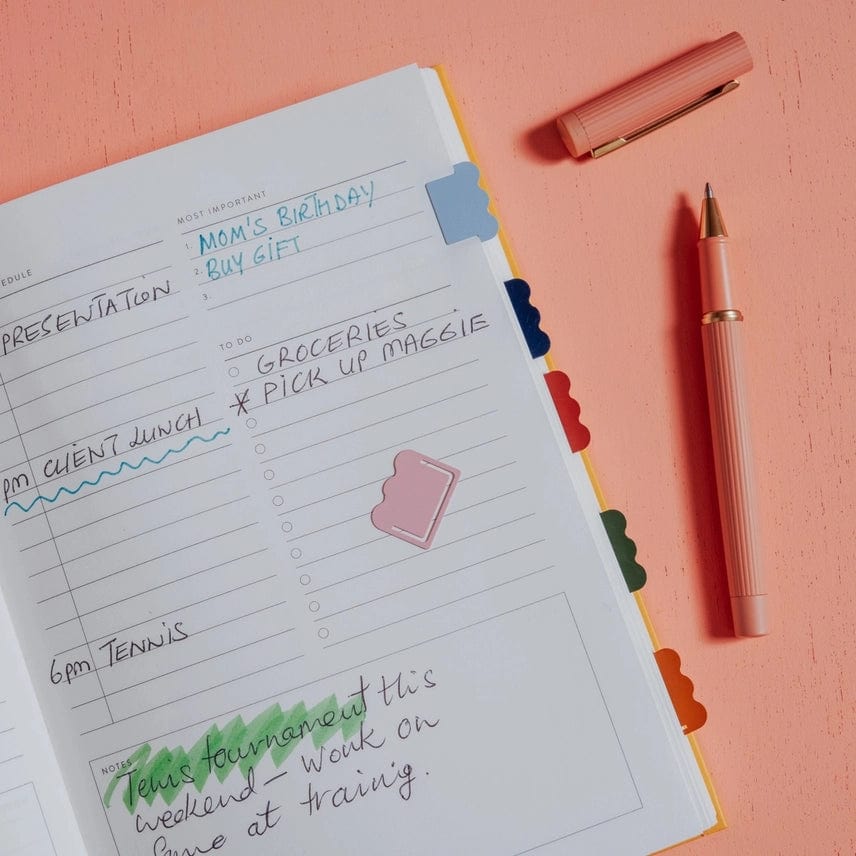 EDULE
PRESENTATION
pm CLIENT LUNCH
6pm TENNIS
MOST IMPORTANT
1. MOM'S BIRTHDAY
2. BUY GIFT
3.
TO DO
GROCERIES
* PICK UP MAGGIE
NOTES
tournament this
weekend - work on
at